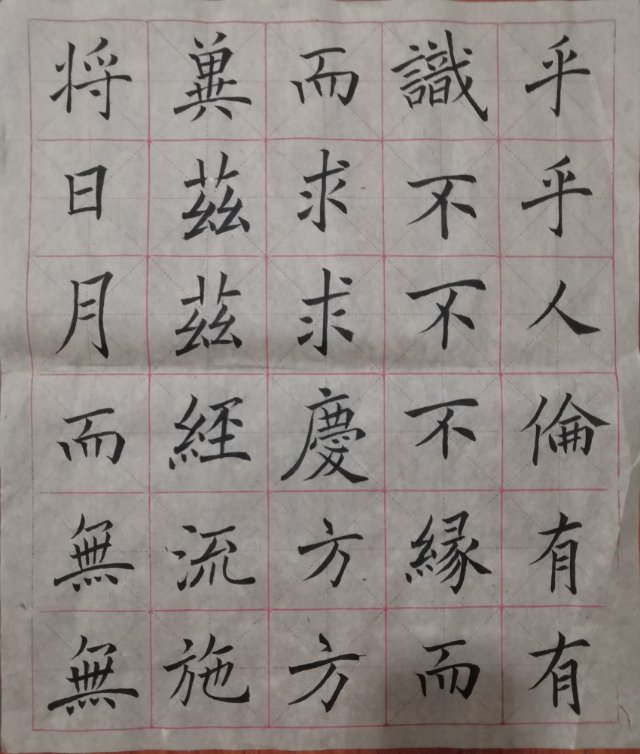 乎乎人倫有有
識不不不緣而
而求求慶方方
冀茲茲經流施
将日月而無無